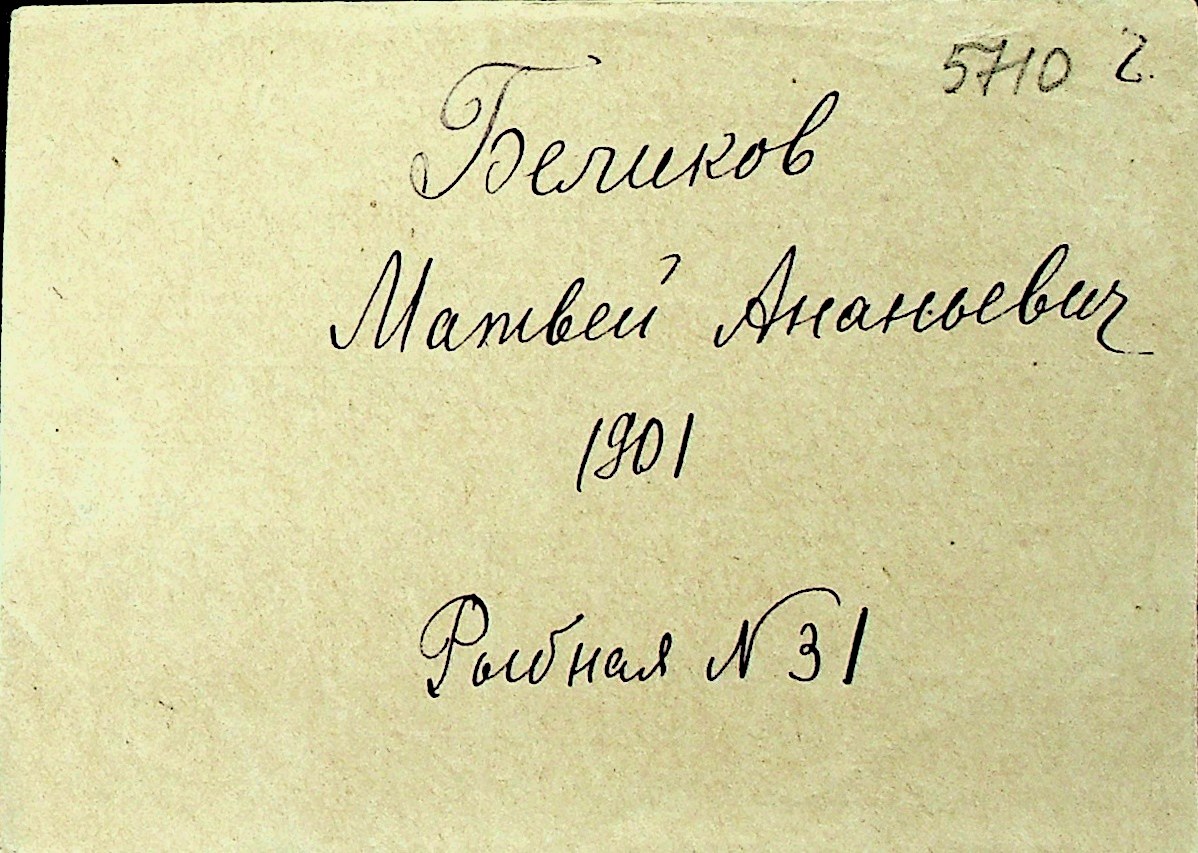 5710 г.
Беликов
Матвей Ананьевич
1901
Рыбная N 31